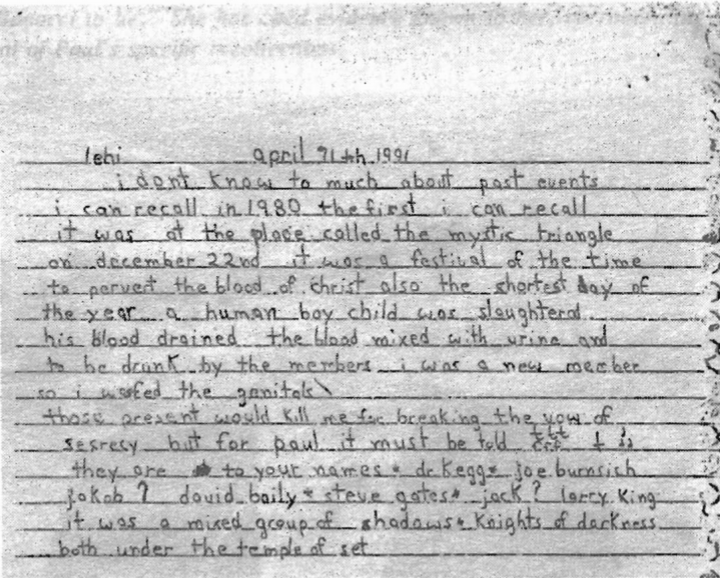 lehi april 21th 1991
i dont know to much about past events
i can recall in 1980 the first i can recall
it was at the place called the mystic triangle
on december 22nd it was a festival of the time
to pervert the blood of christ also the shortest day of
the year a human boy child was slaughterd
his blood drained the blood mixed with urine and
to be drunk by the members i was a new member
so i the genitals
those present would kill me for breaking the vow of
sesresy but for paul it must be told
they are to your names dr kegg joe burnsich
jokob? david baily steve gates jack? larry king
it was a mixed group of shadows knights of darkness
both under the temple of set